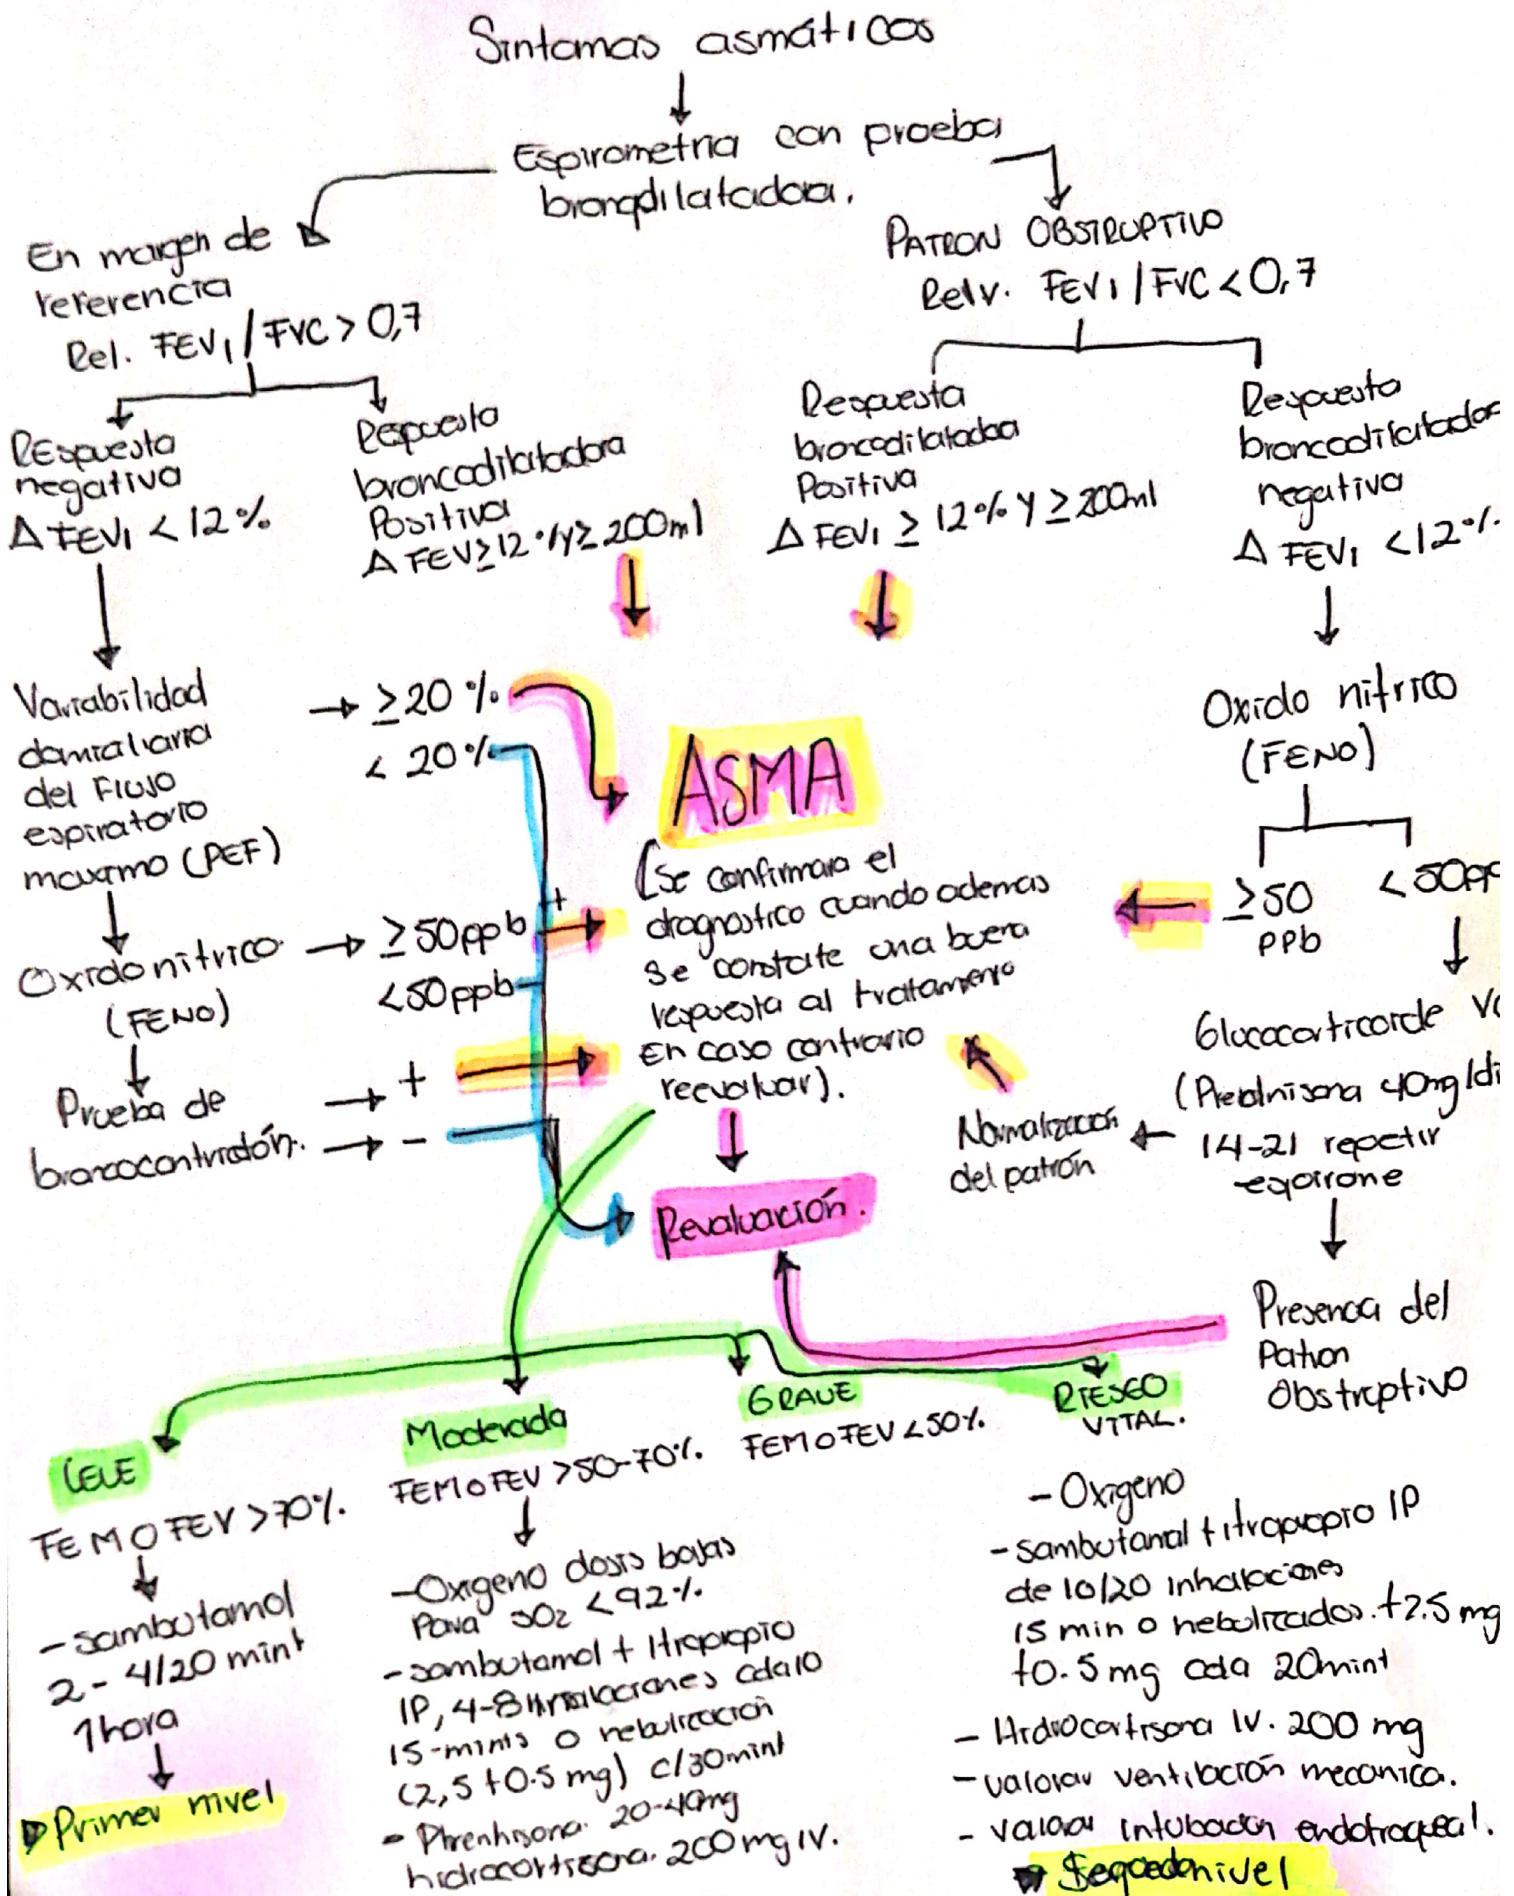 Sintomas asmáticos
Espirometria con prueba
bronqdilatadora.
En margen de
referencia
Rel. FEV1 / FVC > 0,7
PATRON OBSTRUPTIVO
Relv. FEV1 / FVC < 0,7
REspuesta
negativa
Δ FEV1 < 12 %
Respuesta
broncodilatadora
Positiva
Δ FEV ≥ 12 % y ≥ 200ml
Respuesta
broncodilatadoa
Positiva
Δ FEV1 ≥ 12 % Y ≥ 200ml
Respuesta
broncodilatador
negativa
Δ FEV1 < 12 %
Variabilidad
domiciliaria
del Flujo
espiratorio
maximo (PEF)
→ ≥ 20 %
< 20 %
Oxido nitrico → ≥ 50 ppb +
(FENO) < 50 ppb -
Prueba de → +
broncocontricción. → -
ASMA
(Se confirmara el
diagnostico cuando ademas
Se constate una buena
respuesta al tratamiento
En caso contrario
reevaluar).
Revaluación.
Oxido nitrico
(FENO)
≥ 50
PPb
< 50pp
Glucocorticoide Vo
(Prednisona 40mg/di
14-21 repetir
Normalización
del patrón
Presencia del
Patron
Obstruptivo
LEVE
FEM O FEV > 70%.
- Sambutamol
2 - 4/20 mint
1 hora
Primer nivel
Moderada
FEM O FEV > 50-70%.
- Oxigeno dosis bajas
Para SO2 < 92%.
- sambutamol + Itropiopio
IP, 4-8 inhalaciones cada 10
15-mints o nebulización
(2,5 + 0.5 mg) c/30mint
- Phrenhisona. 20-40mg
hidrocortisona. 200 mg IV.
GRAVE
FEM O FEV < 50%.
RIESGO
VITAL.
- Oxigeno
- sambutanol + itropiopio IP
de 10/20 inhalaciones
15 min o nebulizados. + 2.5 mg
+0.5 mg cda 20mint
- Hidrocortisona IV. 200 mg
- valorar ventilación mecanica.
- valorar intubación endotraqueal.
Segundo nivel